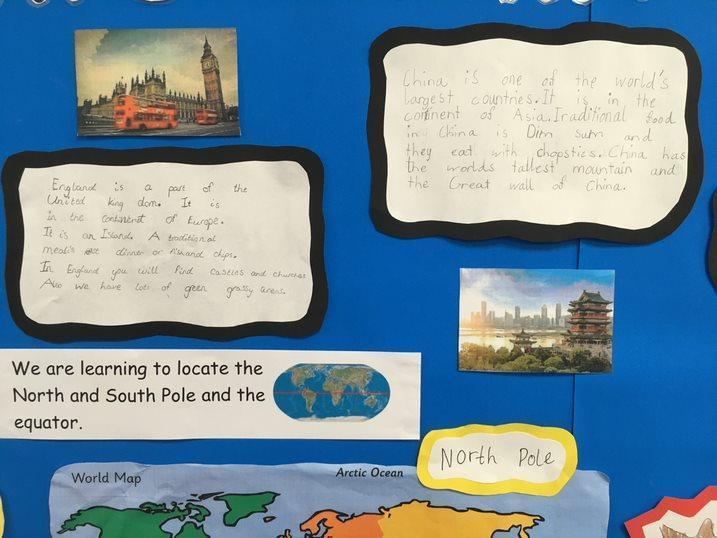 China is one of the world's
largest countries. It is in the
continent of Asia. Traditional food
in China is Dim sum and
they eat with chopstics. China has
the worlds tallest mountain and
the Great wall of China.
England is a part of the
United king dom. It is
in the continent of Europe.
It is an Island. A traditional
meal is dinner or fish and chips.
In England you will find castles and churches
Also we have lots of green grassy areas.
We are learning to locate the
North and South Pole and the
equator.
North Pole
World Map
Arctic Ocean